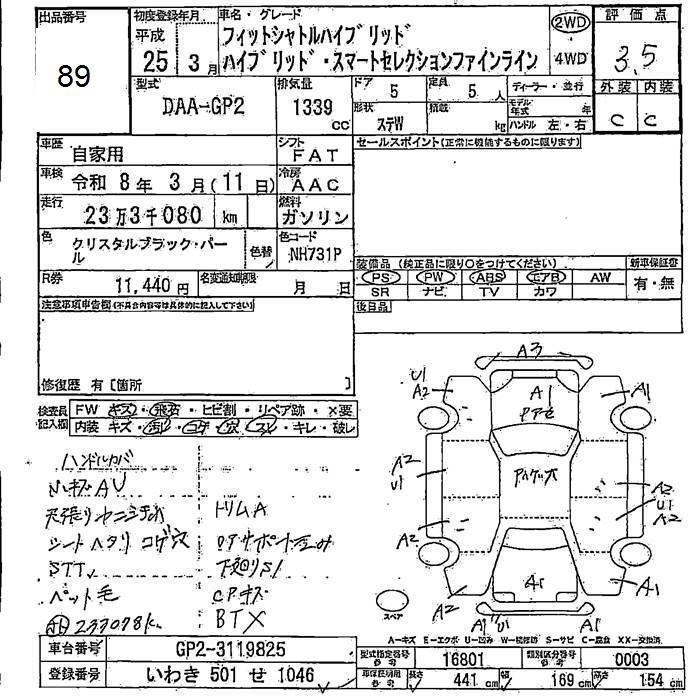 出品番号
89
初度登録年月
平成
25年 3月
車名・グレード
フィットシャトルハイブリッド
ハイブリッド・スマートセレクションファインライン
2WD
4WD
評価点
3.5
外装 内装
C C
型式
DAA-GP2
排気量
1339
cc
ドア 5
定員 5 人
ディーラー・並行
形状
ステW
積載
kg
モデル年式 年
ハンドル 左・右
車歴
自家用
シフト
FAT
車検
令和 8年 3月(11日)
冷房
AAC
走行
23万3千080 km
燃料
ガソリン
色
クリスタルブラック・パール
色替
色コード
NH731P
R券
11,440円
名変通知期限
月 日
セールスポイント(正常に機能するものに限ります)
装備品 (純正品に限り○をつけてください)
新車保証書
PS PW ABS エアB AW
有・無
SR ナビ TV カワ
後日品
注意事項申告欄(不具合内容等は具体的に記入して下さい)
修復歴 有〔箇所 〕
検査員記入欄
FW キズ・飛石・ヒビ割・リペア跡・×要
内装 キズ・コゲ・穴・スレ・キレ・破レ
ハンドルカバ
トリムA
シートヘタリ コゲ穴
STレ
下廻りS1
ペット毛
CPキズ
233078k
BTX
A3
U1
A2
A1
A1
A2
U1
A2
U1
A2
A2
A2
A1
A1
A1
スペア
A-キズ E-エクボ U-凹み W-補修跡 S-サビ C-腐食 XX-交換済
車台番号
GP2-3119825
登録番号
いわき 501 せ 1046
型式指定番号
参考
16801
類別区分番号
参考
0003
車保証明用
参考
長さ 441 cm
幅 169 cm
高さ 154 cm